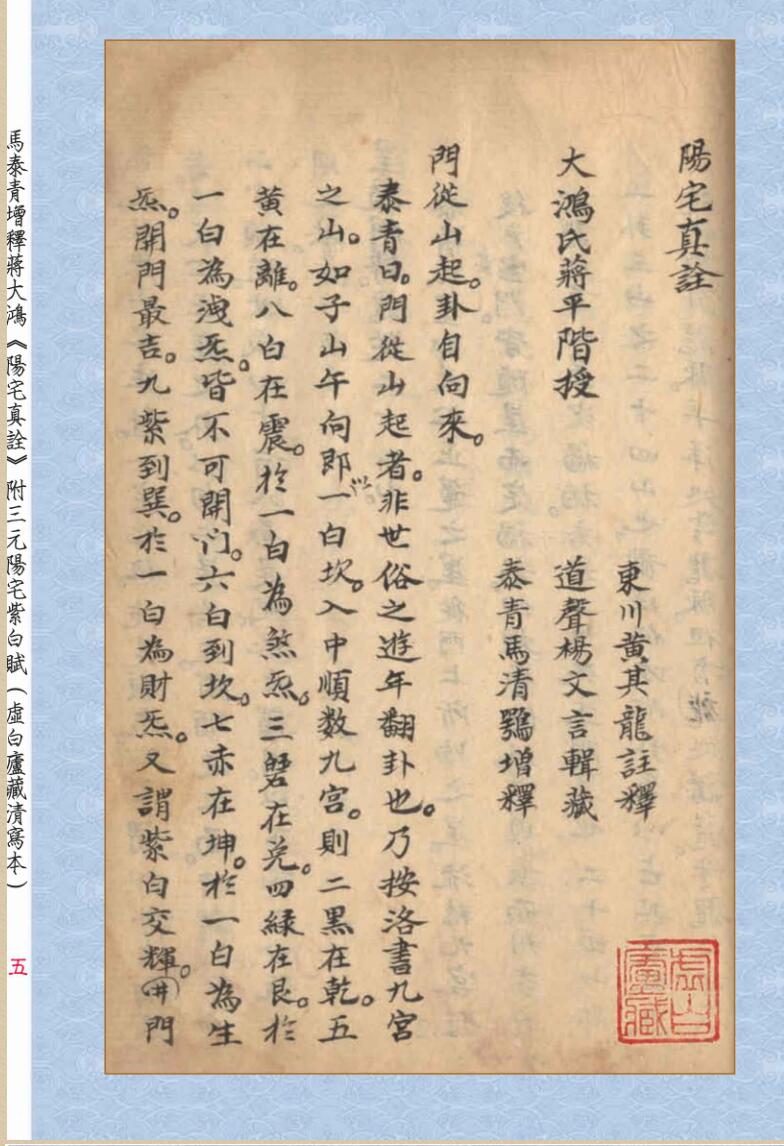 陽宅真詮
東川黃其龍註釋
大鴻氏蔣平階授
道聲楊文言輯藏
泰青馬清鶚增釋
門從山起。卦自向來。
泰青曰。門從山起者。非世俗之遊年翻卦也。乃按洛書九宮
之山。如子山午向即以一白坎。入中順數九宮。則二黑在乾。五
黃在離。八白在震。於一白為煞炁。三碧在兌。四綠在艮。於
一白為洩炁。皆不可開門。六白到坎。七赤在坤。於一白為生
炁。開門最吉。九紫到巽。於一白為財炁。又謂紫白交輝。開門
虛白廬藏
馬泰青增釋蔣大鴻《陽宅真詮》附三元陽宅紫白賦(虛白廬藏清寫本)
五